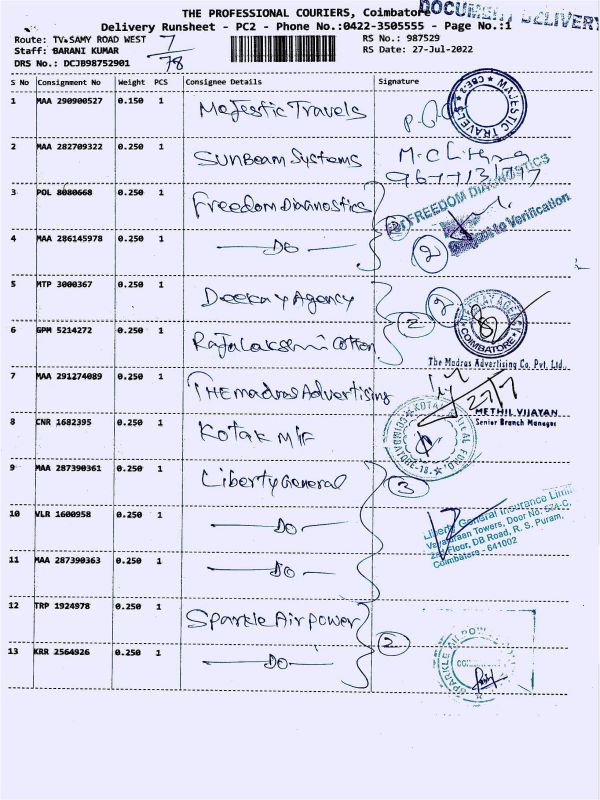 THE PROFESSIONAL COURIERS, Coimbatore
DOCUMENT DELIVERY
Delivery Runsheet - PC2 - Phone No.:0422-3505555 - Page No.:1
Route: TV.SAMY ROAD WEST 7 RS No.: 987529
Staff: BARANI KUMAR RS Date: 27-Jul-2022
DRS No.: DCJB98752901 78
S No Consignment No Weight PCS Consignee Details Signature
1 MAA 290900527 0.150 1 Majestic Travels
MAJESTIC TRAVELS CBE-2
2 MAA 282709322 0.250 1 Sunbeam Systems
3 POL 8080668 0.250 1 Freedom Diagnostics
For FREEDOM DIAGNOSTICS
Subject to Verification
4 MAA 286145978 0.250 1 DO 2
5 MTP 3000367 0.250 1 Deekay Agency 2
COIMBATORE
6 GPM 5214272 0.250 1 Rajalakshmi Cotton
The Madras Advertising Co. Pvt. Ltd.,
7 MAA 291274089 0.250 1 THE madras Advertising 27/7
METHIL VIJAYAN
Senior Branch Manager
8 CNR 1682395 0.250 1 Kotak M/F
9 MAA 287390361 0.250 1 Liberty General 3
Liberty General Insurance Limi
10 VLR 1600958 0.250 1 DO
2nd Floor, DB Road, R. S. Puram,
Coimbatore - 641002
11 MAA 287390363 0.250 1 DO
12 TRP 1924978 0.250 1 Sparkle Air power
SPARKLE AIR POWER
13 KRR 2564926 0.250 1 DO 2